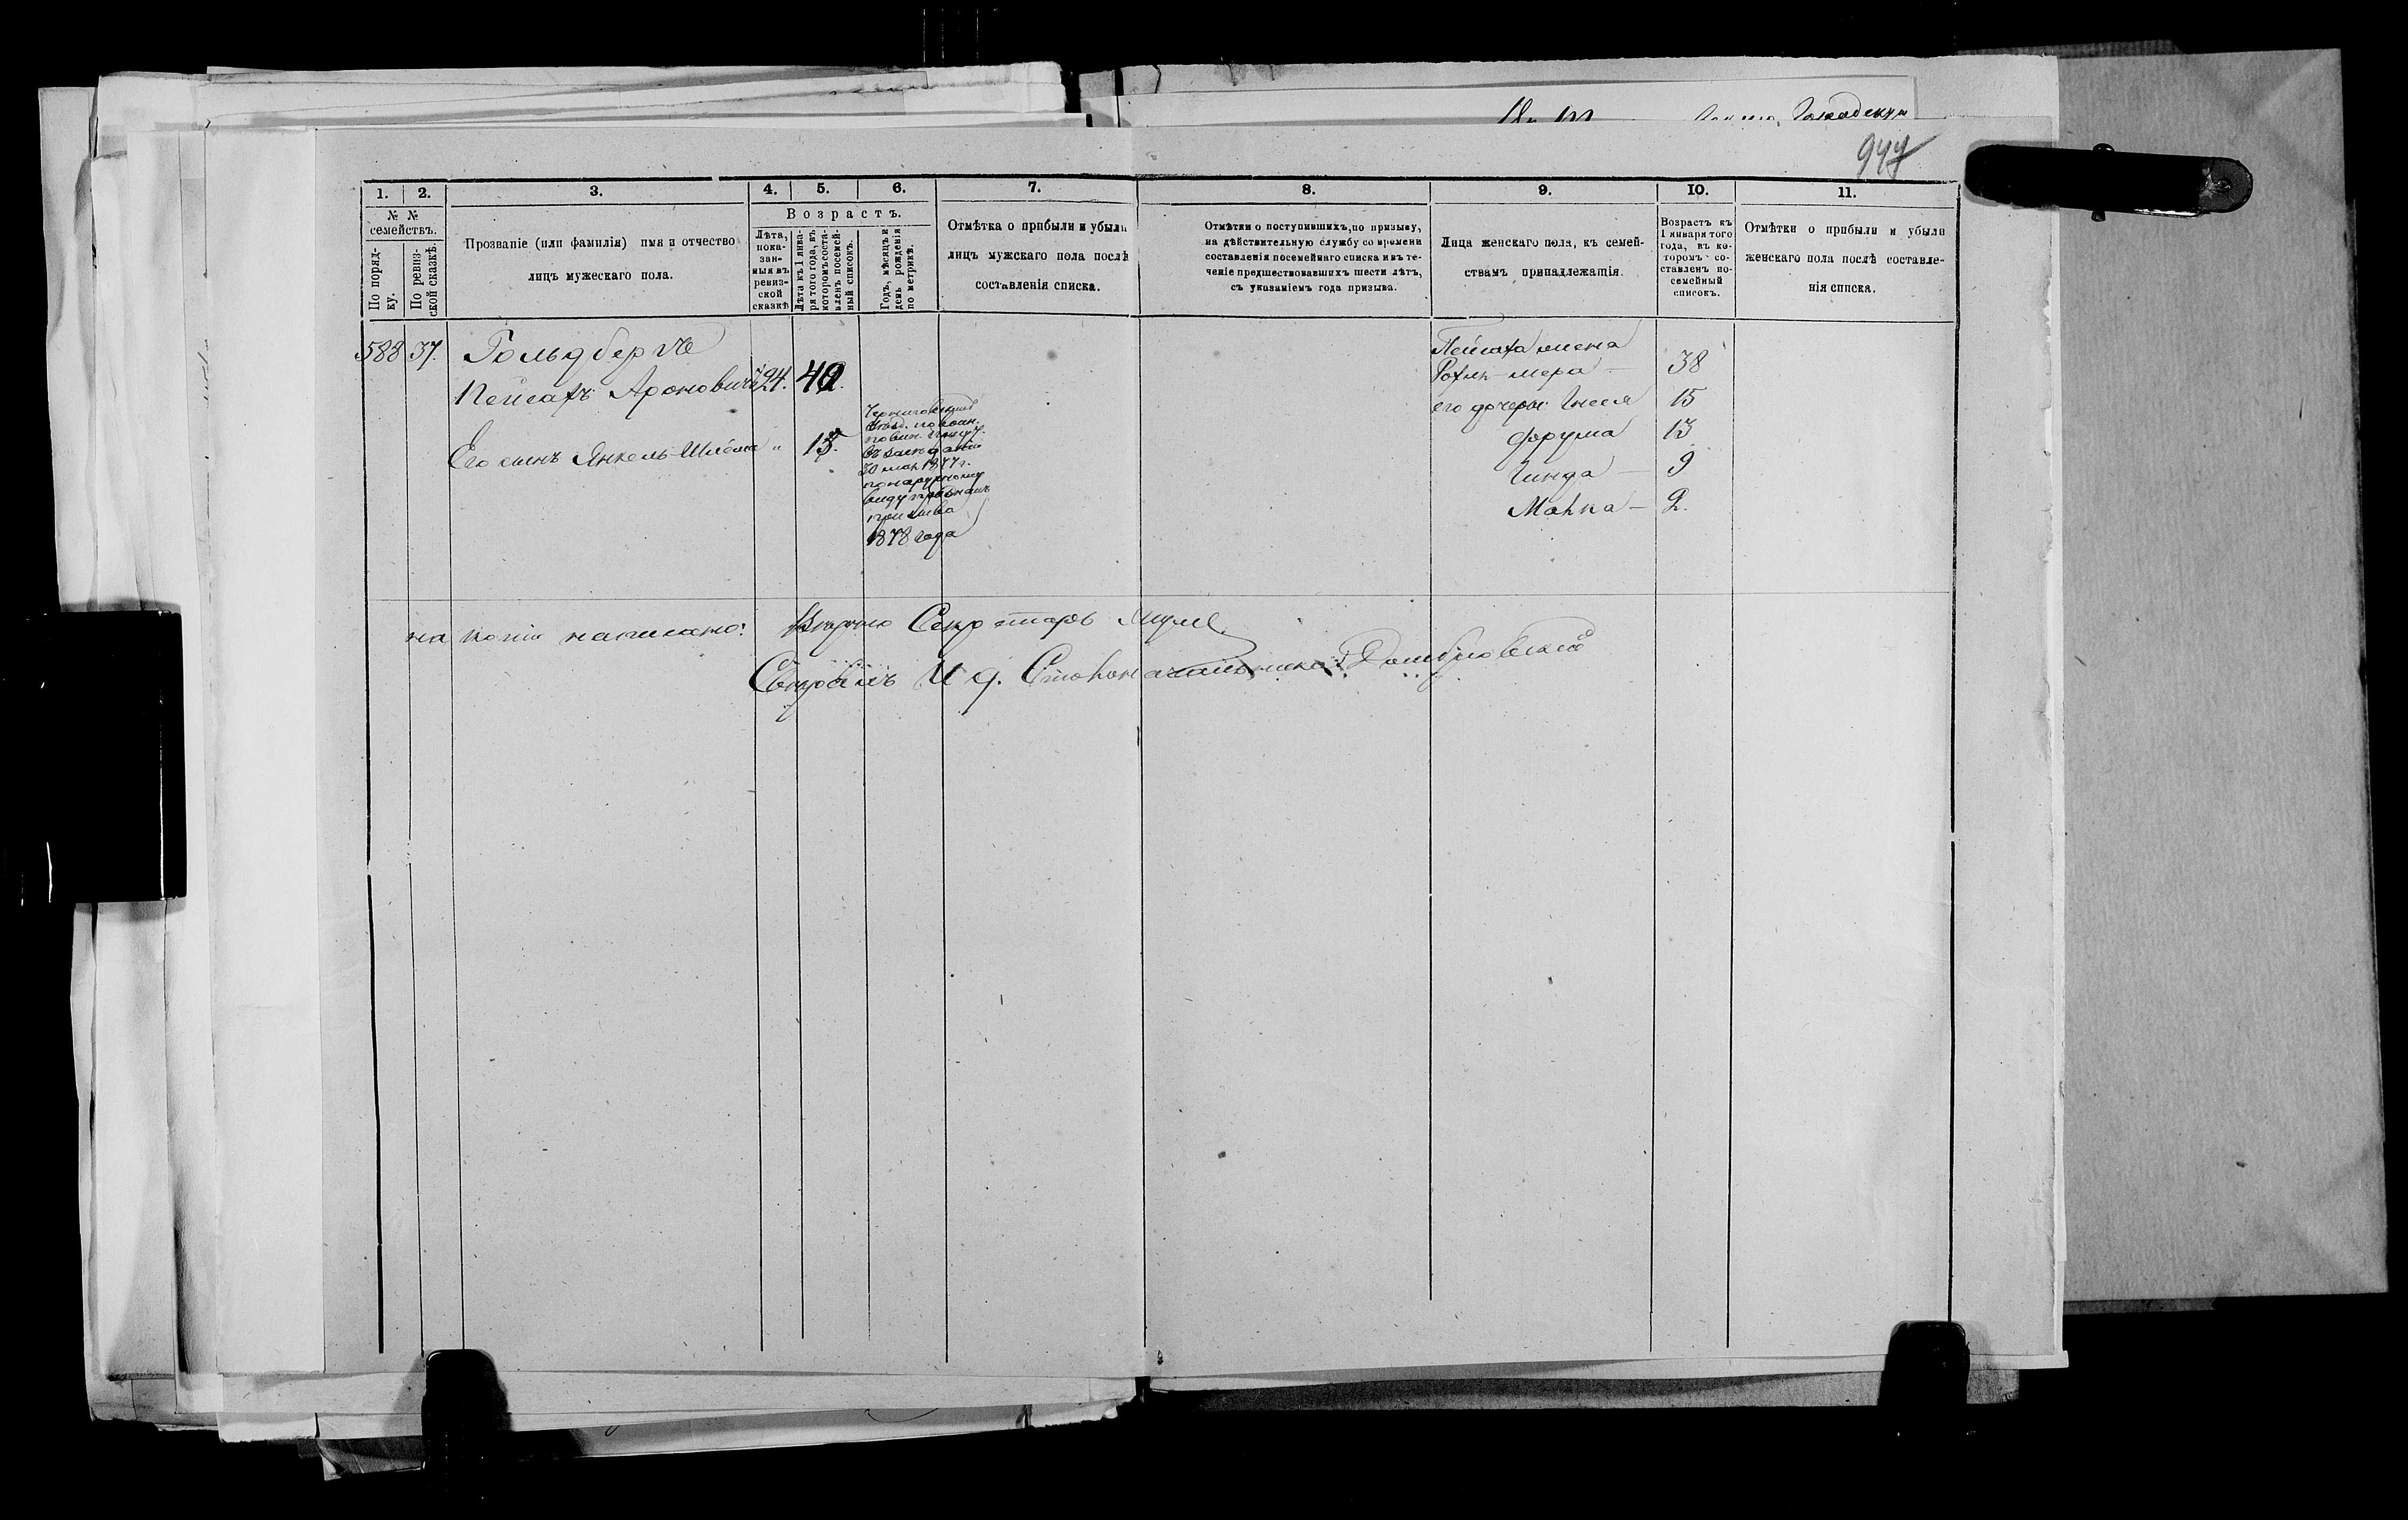 944
1. 2. 3. 4. 5. 6. 7. 8. 9. 10. 11.
№ №
семействъ.
По поряд-
ку.
По ревиз-
ской сказкѣ.
Прозваніе (или фамилія) имя и отчество
лицъ мужескаго пола.
Возрастъ.
Лѣта,
пока-
зан-
ныя въ
ревиз-
ской
сказкѣ
Лѣта къ 1 янва-
ря того года, въ
которомъ соста-
вленъ посемей-
ный списокъ.
Годъ, мѣсяцъ и
день рожденія
по метрикѣ.
Отмѣтка о прибыли и убыли
лицъ мужскаго пола послѣ
составленія списка.
Отмѣтки о поступившихъ, по призыву,
на дѣйствительную службу со времени
составленія посемейнаго списка и въ те-
ченіе предшествовавшихъ шести лѣтъ,
съ указаніемъ года призыва.
Лица женскаго пола, къ семей-
ствамъ принадлежащія.
Возрастъ къ
1 января того
года, въ ко-
торомъ со-
ставленъ по-
семейный
списокъ.
Отмѣтки о прибыли и убыли
женскаго пола послѣ составле-
нія списка.
588 37. Гольдбергъ
Пейсахъ Ароновичъ 24. 40.
Его сынъ Янкель-Шлёма " 15.
Черниговскимъ
Уѣзд. по воин.
повин. присут.
въ засѣданіи
20 мая 1877 г.
по наружному
виду признанъ
призыва
1878 года
Пейсаха жена
Рохля-мера 38
его дочери: Гнеся 15
Фрума 13
Гинда — 9
Махка — 2.
на копіи написано: Вѣрно Секретарь
Свѣрялъ И д. Столоначальника Домбровскій